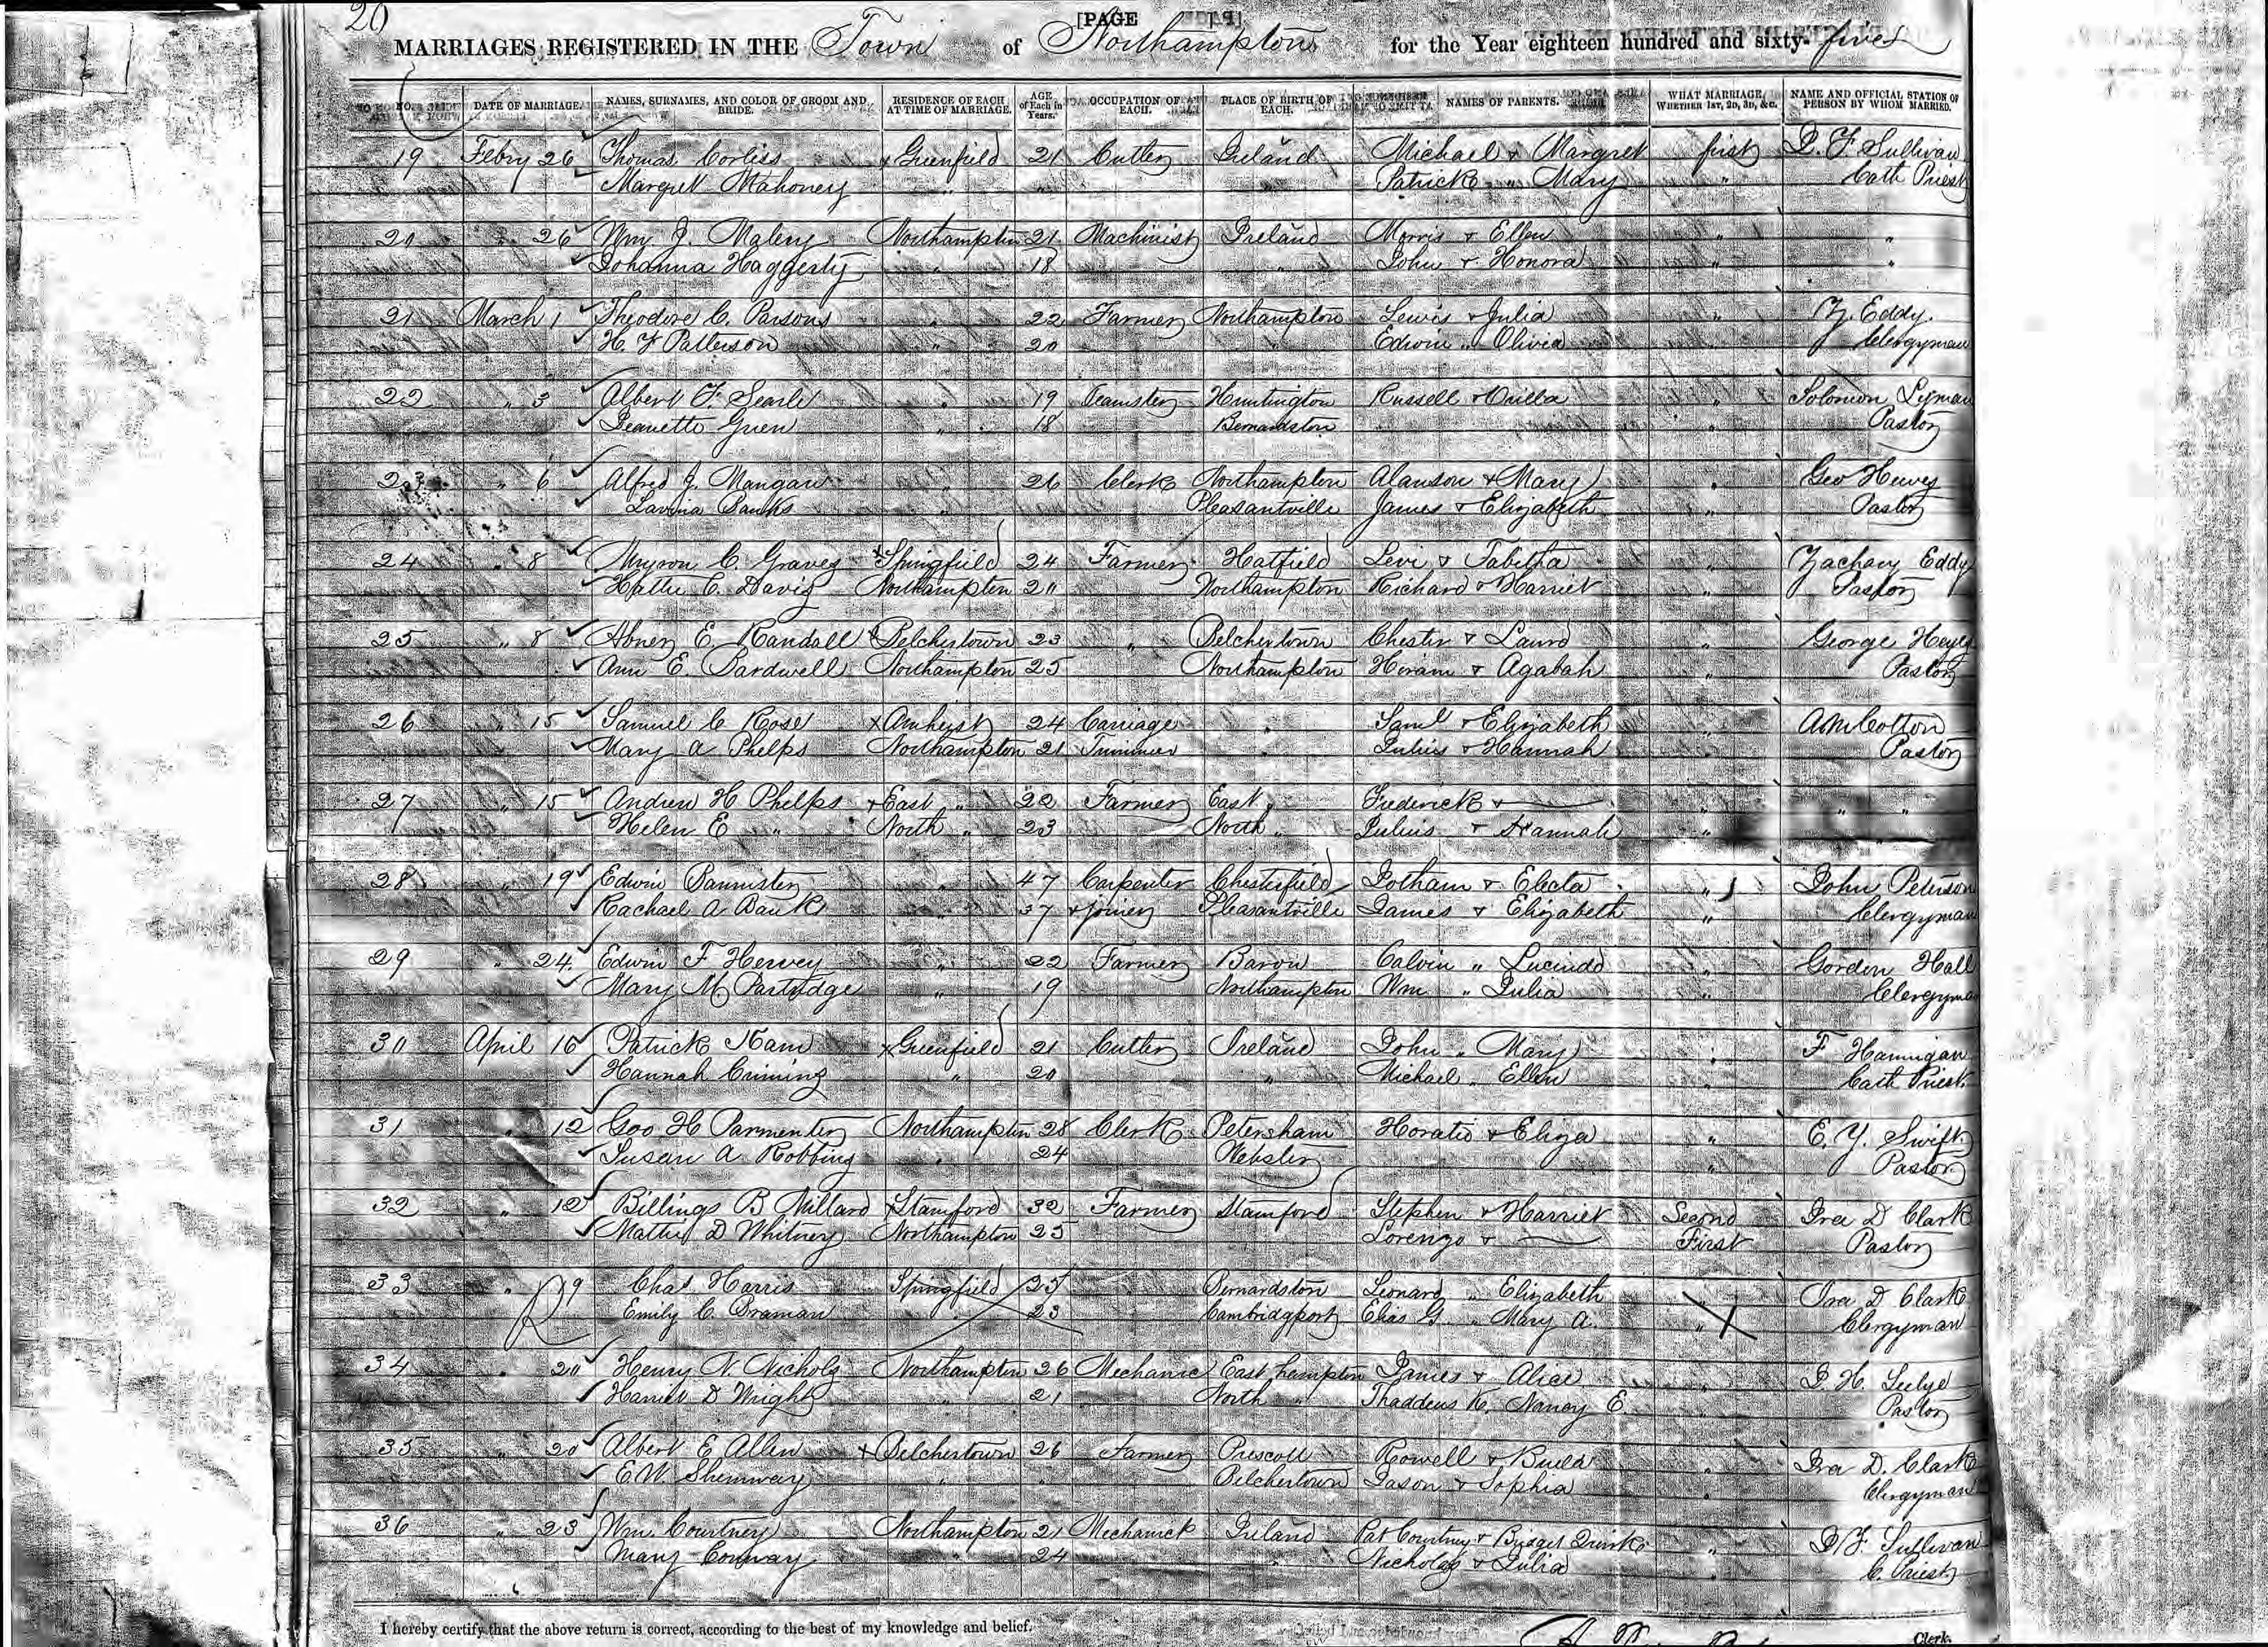 20
[PAGE
MARRIAGES REGISTERED IN THE Town of Northampton for the Year eighteen hundred and sixty-five
NO. DATE OF MARRIAGE. NAMES, SURNAMES, AND COLOR OF GROOM AND BRIDE. RESIDENCE OF EACH AT TIME OF MARRIAGE. AGE of Each in Years. OCCUPATION OF EACH. PLACE OF BIRTH OF EACH. NAMES OF PARENTS. WHAT MARRIAGE, WHETHER 1ST, 2D, 3D, &C. NAME AND OFFICIAL STATION OF PERSON BY WHOM MARRIED.
19 Febry 26 Thomas Corliss x Greenfield 21 Cutler Ireland Michael & Margret first D. F. Sullivan
Margret Mahoney " " " Patrick " Mary " Cath Priest
20 " 26 Wm J. Malery Northampton 21 Machinist Ireland Morris & Ellen " "
Johanna Haggerty " 18 " John & Honora " "
21 March 1 Theodore C. Parsons " 22 Farmer Northampton Lewis & Julia " Z. Eddy
H. F Patterson " 20 " Edwin " Olivia " Clergyman
22 " 3 Albert F. Searle " 19 Teamster Huntington Russell & " Solomon Lyman
Jeanette Green " 18 Bernardston " Pastor
23 " 6 Alfred J. Mangan " 26 Clerk Northampton Alanson & Mary " Geo
Lavinia Banks " Pleasantville James & Elizabeth " Pastor
24 " 8 Myron C. Graves x Springfield 24 Farmer Hatfield Levi & Tabitha " Zachary Eddy
Hattie C. Davis Northampton 20 Northampton Richard & Harriet " Pastor
25 " 8 Abner E. Randall x Belchertown 23 " Belchertown Chester & Laura " George
Ann E. Bardwell Northampton 25 Northampton Horam & Agabah " Pastor
26 " 15 Samuel C Rose x Amherst 24 Carriage " Saml & Elizabeth " A M Colton
Mary A Phelps Northampton 21 Trimmer " Julius & Hannah " Pastor
27 " 15 Andrew H Phelps x East " 22 Farmer East " Frederick & — " " "
Helen E " North " 23 North " Julius & Hannah "
28 " 19 Edwin Bannister " 47 Carpenter Chesterfield Jotham & Electa " John Peterson
Rachael A Banks " 37 & joiner Pleasantville James & Elizabeth " Clergyman
29 " 24 Edwin F Hervey " 22 Farmer Calvin " Lucinda " Gordon Hall
Mary M Partridge " 19 Northampton Wm " Julia " Clergyman
30 April 16 Patrick Kain x Greenfield 21 Cutler Ireland John " Mary " F Hannigan
Hannah Criming " 20 " Michael " Ellen " Cath Priest
31 " 12 Geo H Parmenter Northampton 28 Clerk Petersham Horatio & Eliza " E. Y. Swift
Susan A Robbins " 24 Webster " Pastor
32 " 12 Billings B Millard x Stamford 32 Farmer Stamford Stephen & Harriet Second Ira D Clark
Mattie D Whitney Northampton 25 Lorenzo & — First Pastor
33 " 19 Chas Harris Springfield 25 Bernardston Leonard " Elizabeth " Ira D Clark
Emily C. Draman " 23 Cambridgeport Elias G. " Mary A. " Clergyman
34 " 20 Henry N. Nichols Northampton 26 Mechanic East hampton James & Alice " J. H. Seelye
Harriet D Wright " 21 North " Thaddeus K. Nancy E. " Pastor
35 " 20 Albert E Allen x Belchertown 26 Farmer Prescott Rowell & " Ira D. Clark
E. W. Shumway " " Belchertown Jason & Sophia " Clergyman
36 " 23 Wm. Courtney Northampton 21 Mechanick Ireland Pat Courtney & Bridget Quirke " D. F. Sullivan
Mary Conway " 24 " Nicholas & Julia " C. Priest
I hereby certify that the above return is correct, according to the best of my knowledge and belief.
Clerk.